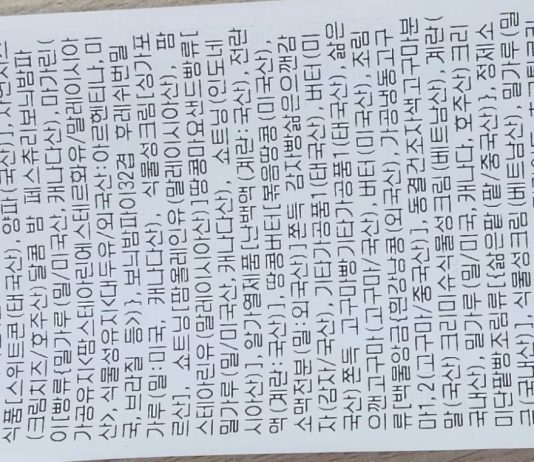 식품[스위트콘(태국산), 양파(국산)], 사워치즈
(크림치즈/호주산)달콤 밤 페스츄리보늬밤파
이[빵류{밀가루(밀/미국산, 캐나다산), 마가린(
가공유지<팜스테아린에스테르화유/말레이시아
산>, 식물성유지<대두유/외국산:아르헨티나, 미
국, 브라질 등>)}, 보늬밤파이]32겹 후레쉬번[밀
가루(밀:미국, 캐나다산), 식물성크림(싱가포
르산), 쇼트닝[팜올레인유(말레이시아산), 팜
스테아리유(말레이시아산)]땅콩마요샌드빵류[
밀가루(밀/미국산, 캐나다산), 쇼트닝(인도네
시아산)], 알가열제품[난백액(계란:국산), 전란
액(계란:국산)], 땅콩버터[볶음땅콩(미국산),
소맥전분(밀:외국산)]쫀득 감자빵삶은으깬감
자(감자/국산), 기타가공품1(태국산), 버터(미
국산)쫀득 고구마빵기타가공품1(태국산), 삶은
으깬고구마(고구마/국산), 버터(미국산), 조림
류[백물앙금(흰강낭콩(외국산), 가공냉동고구
마1,2(고구마/중국산)], 동결건조자색고구마분
말(국산)크리미슈식물성크림(베트남산), 계란(
국내산), 밀가루(밀/미국, 캐나다, 호주산)크리
미단팥빵조림류[{삶은팥(팥/중국산)}, 정제소
금(국내산)], 식물성크림(베트남산), 밀가루(밀